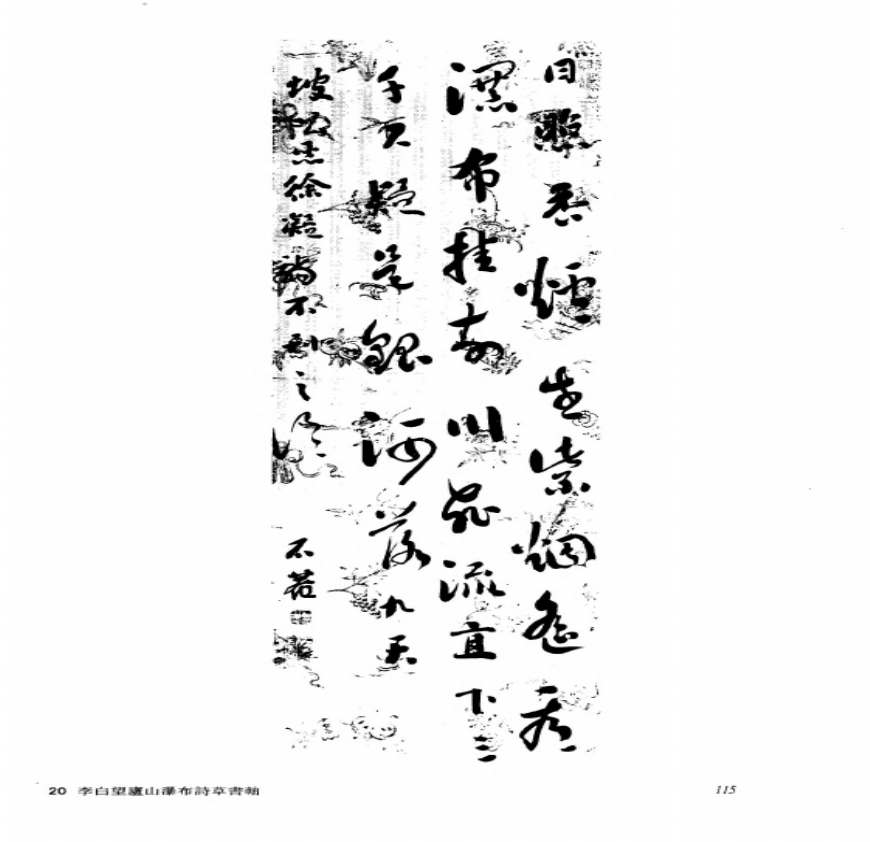 日照香爐生紫烟遙看
瀑布挂前川飛流直下三
千尺疑是銀河落九天
坡徐凝不到之
不若
20 李白望廬山瀑布詩草書軸
115